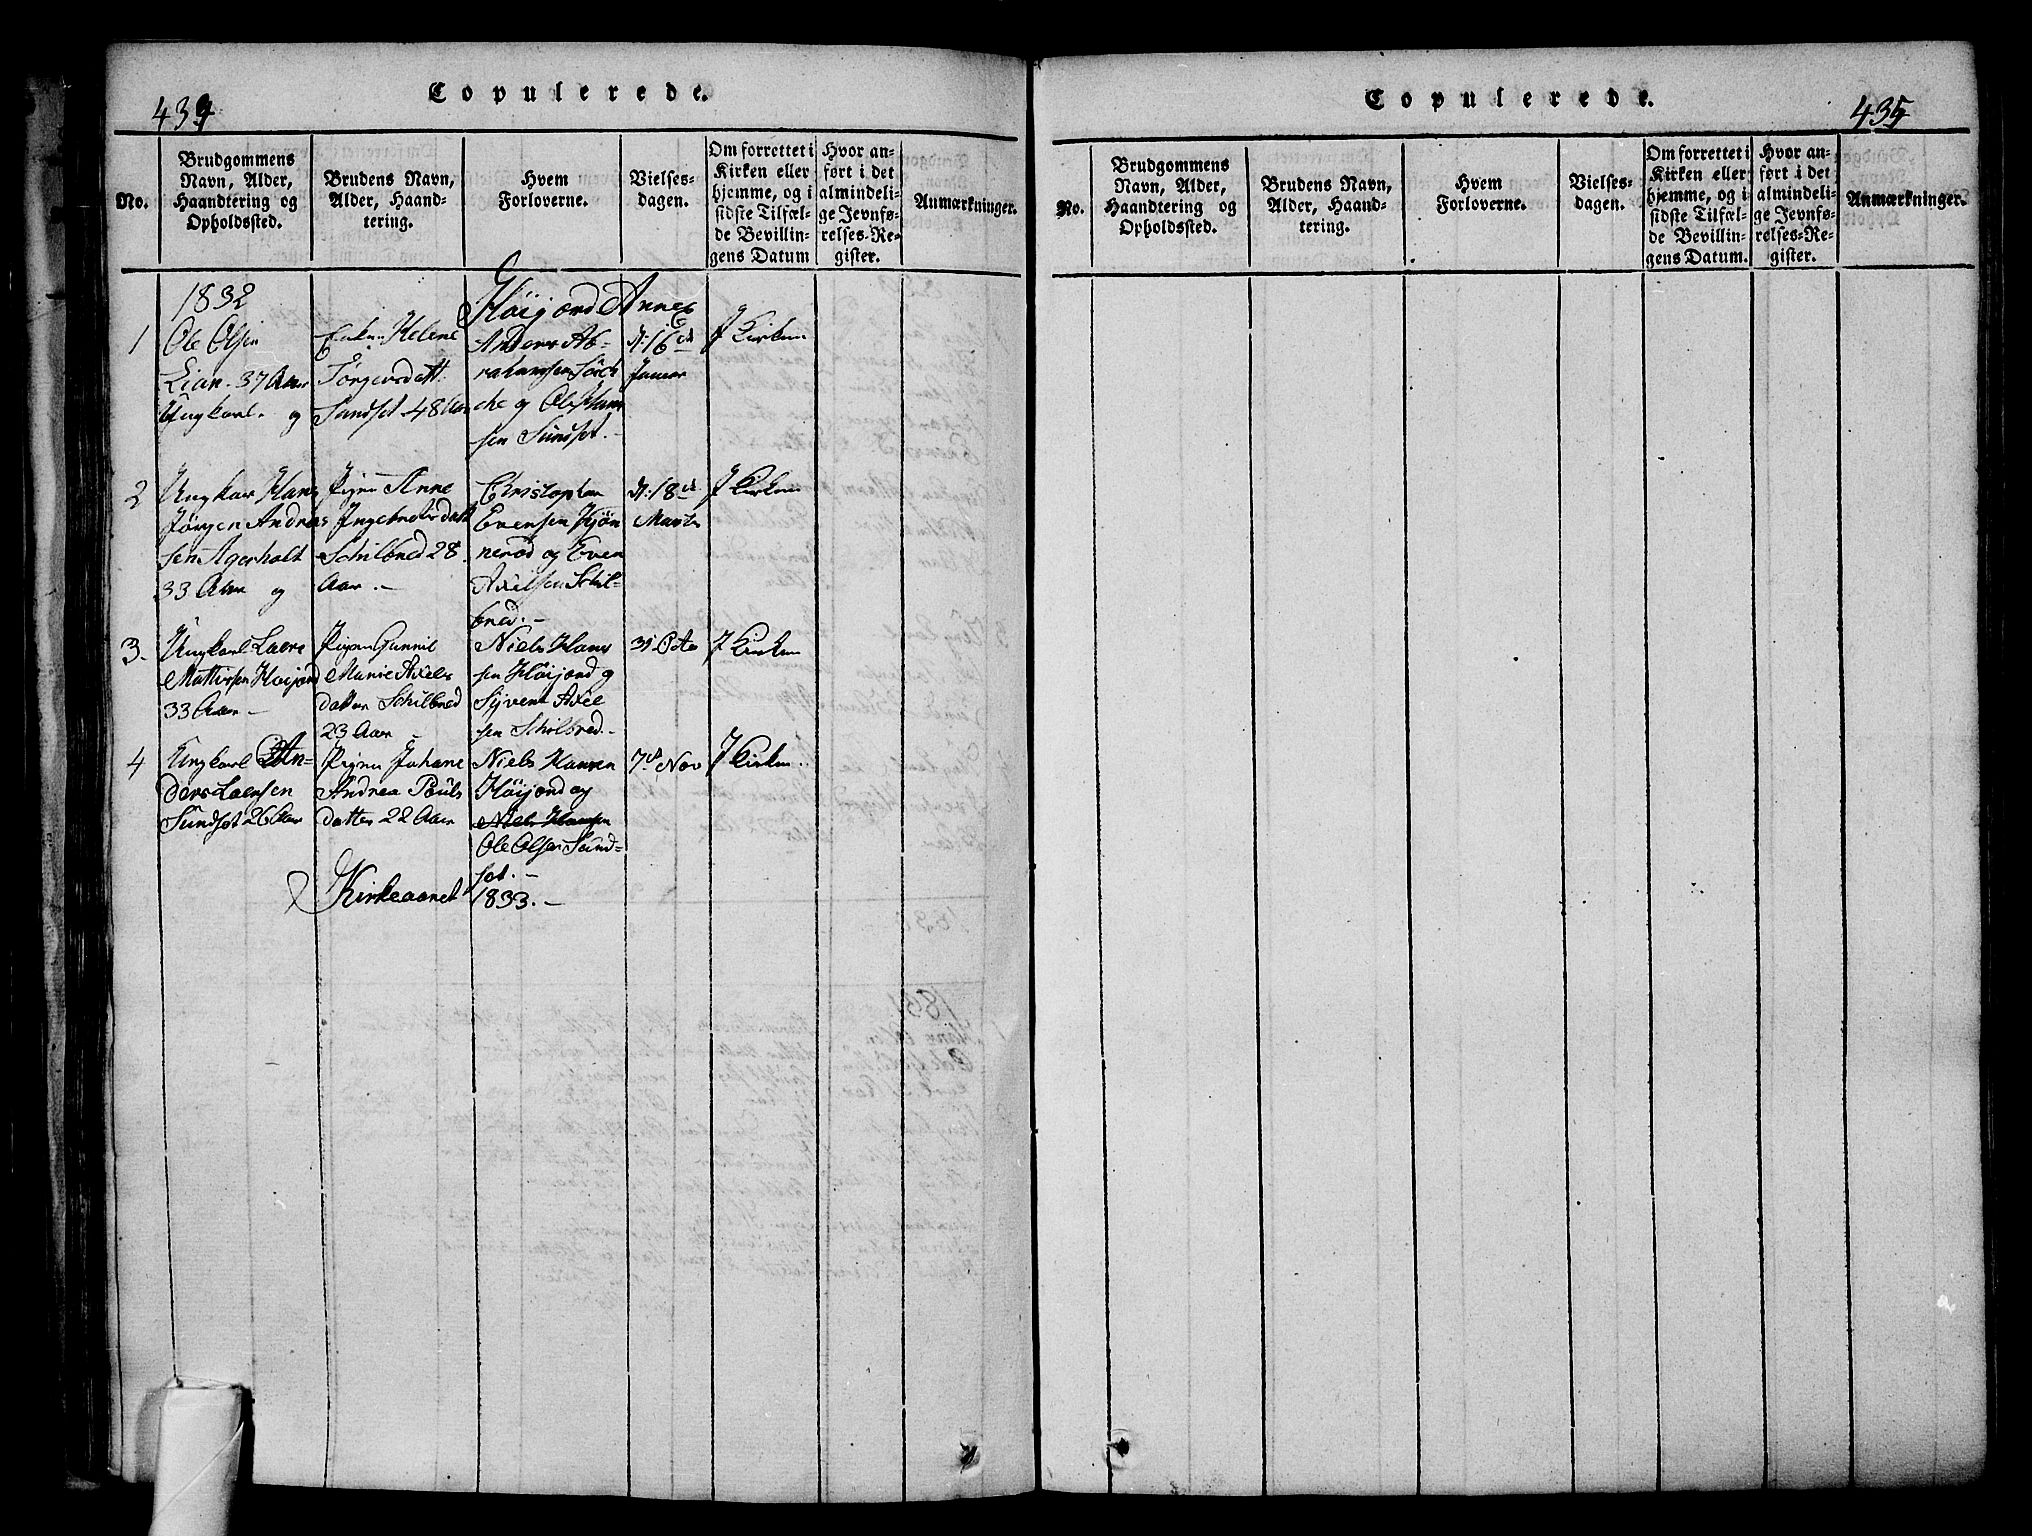 434
Copulerede.
No.
Brudgommens
Navn, Alder,
Haandtering og
Opholdssted.
Brudens Navn,
Alder, Haand-
tering.
Hvem
Forloverne.
Vielses-
dagen.
Om forrettet i
Kirken eller
hjemme, og i
sidste Tilfæl-
de Bevillin-
gens Datum
Hvor an-
ført i det
almindeli-
ge Jevnfø-
relses-Re-
gister.
Anmærkninger.
1832
Höijord Annex
1
Ole Olsen
Lian. 37 Aar
Ungkarl. og
Enken Helene
Jörgensdatt:
Sundset 48 Aar
Anders Ab-
rahamsen
og Ole Hans
sen Sundset.-
d: 16de
Januar
J Kirken
2
Ungkar Hans
Jörgen Andreas
sen Agerholt
33 Aar og
Pigen Anne
Ingebretsdatt
Schilbred 28
Aar.-
Christopher
Evensen Hjön
neröd og Even
Axelsen Schil-
bred.-
d: 18de
Marts
J Kirken
3.
Ungkarl Laers
Mathisen Höijord
33 Aar -
Pigen Gunnil
Marie Axels
datter Schilbred
23 Aar -
Niels Hans
sen Höijord og
Syvert Axel
sen Schilbred.-
31 Octo
J Kirken
4
Ungkarl An-
ders Laersen
Sundset 26 Aar
Pigen Johane
Andrea Pouls
datter 22 Aar
Niels Hansen
Höijord og
Niels Hansen
Ole Olsen Sund-
set.-
7de Nov
J Kirken.
Kirkeaaret 1833.-
435
Copulerede.
No.
Brudgommens
Navn, Alder,
Haandtering og
Opholdssted.
Brudens Navn,
Alder, Haand-
tering.
Hvem
Forloverne.
Vielses-
dagen.
Om forrettet i
Kirken eller
hjemme, og i
sidste Tilfæl-
de Bevillin-
gens Datum.
Hvor an-
ført i det
almindeli-
ge Jevnfø-
relses-Re-
gister.
Anmærkninger.